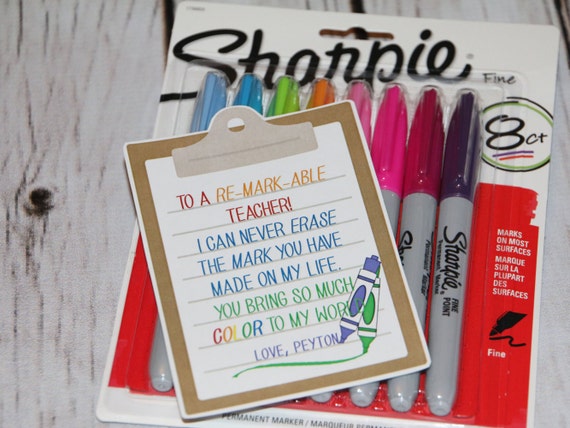 Sharpie
Fine
8ct
TO A RE-MARK-ABLE
TEACHER!
I CAN NEVER ERASE
THE MARK YOU HAVE
MADE ON MY LIFE.
YOU BRING SO MUCH
COLOR TO MY WOR
LOVE, PEYTON
MARKS
ON MOST
SURFACES
MARQUE
SUR LA
PLUPART
DES
SURFACES
Fine
Sharpie
FINE
POINT
PERMANENT MARKER / MARQUEUR PERMANENT